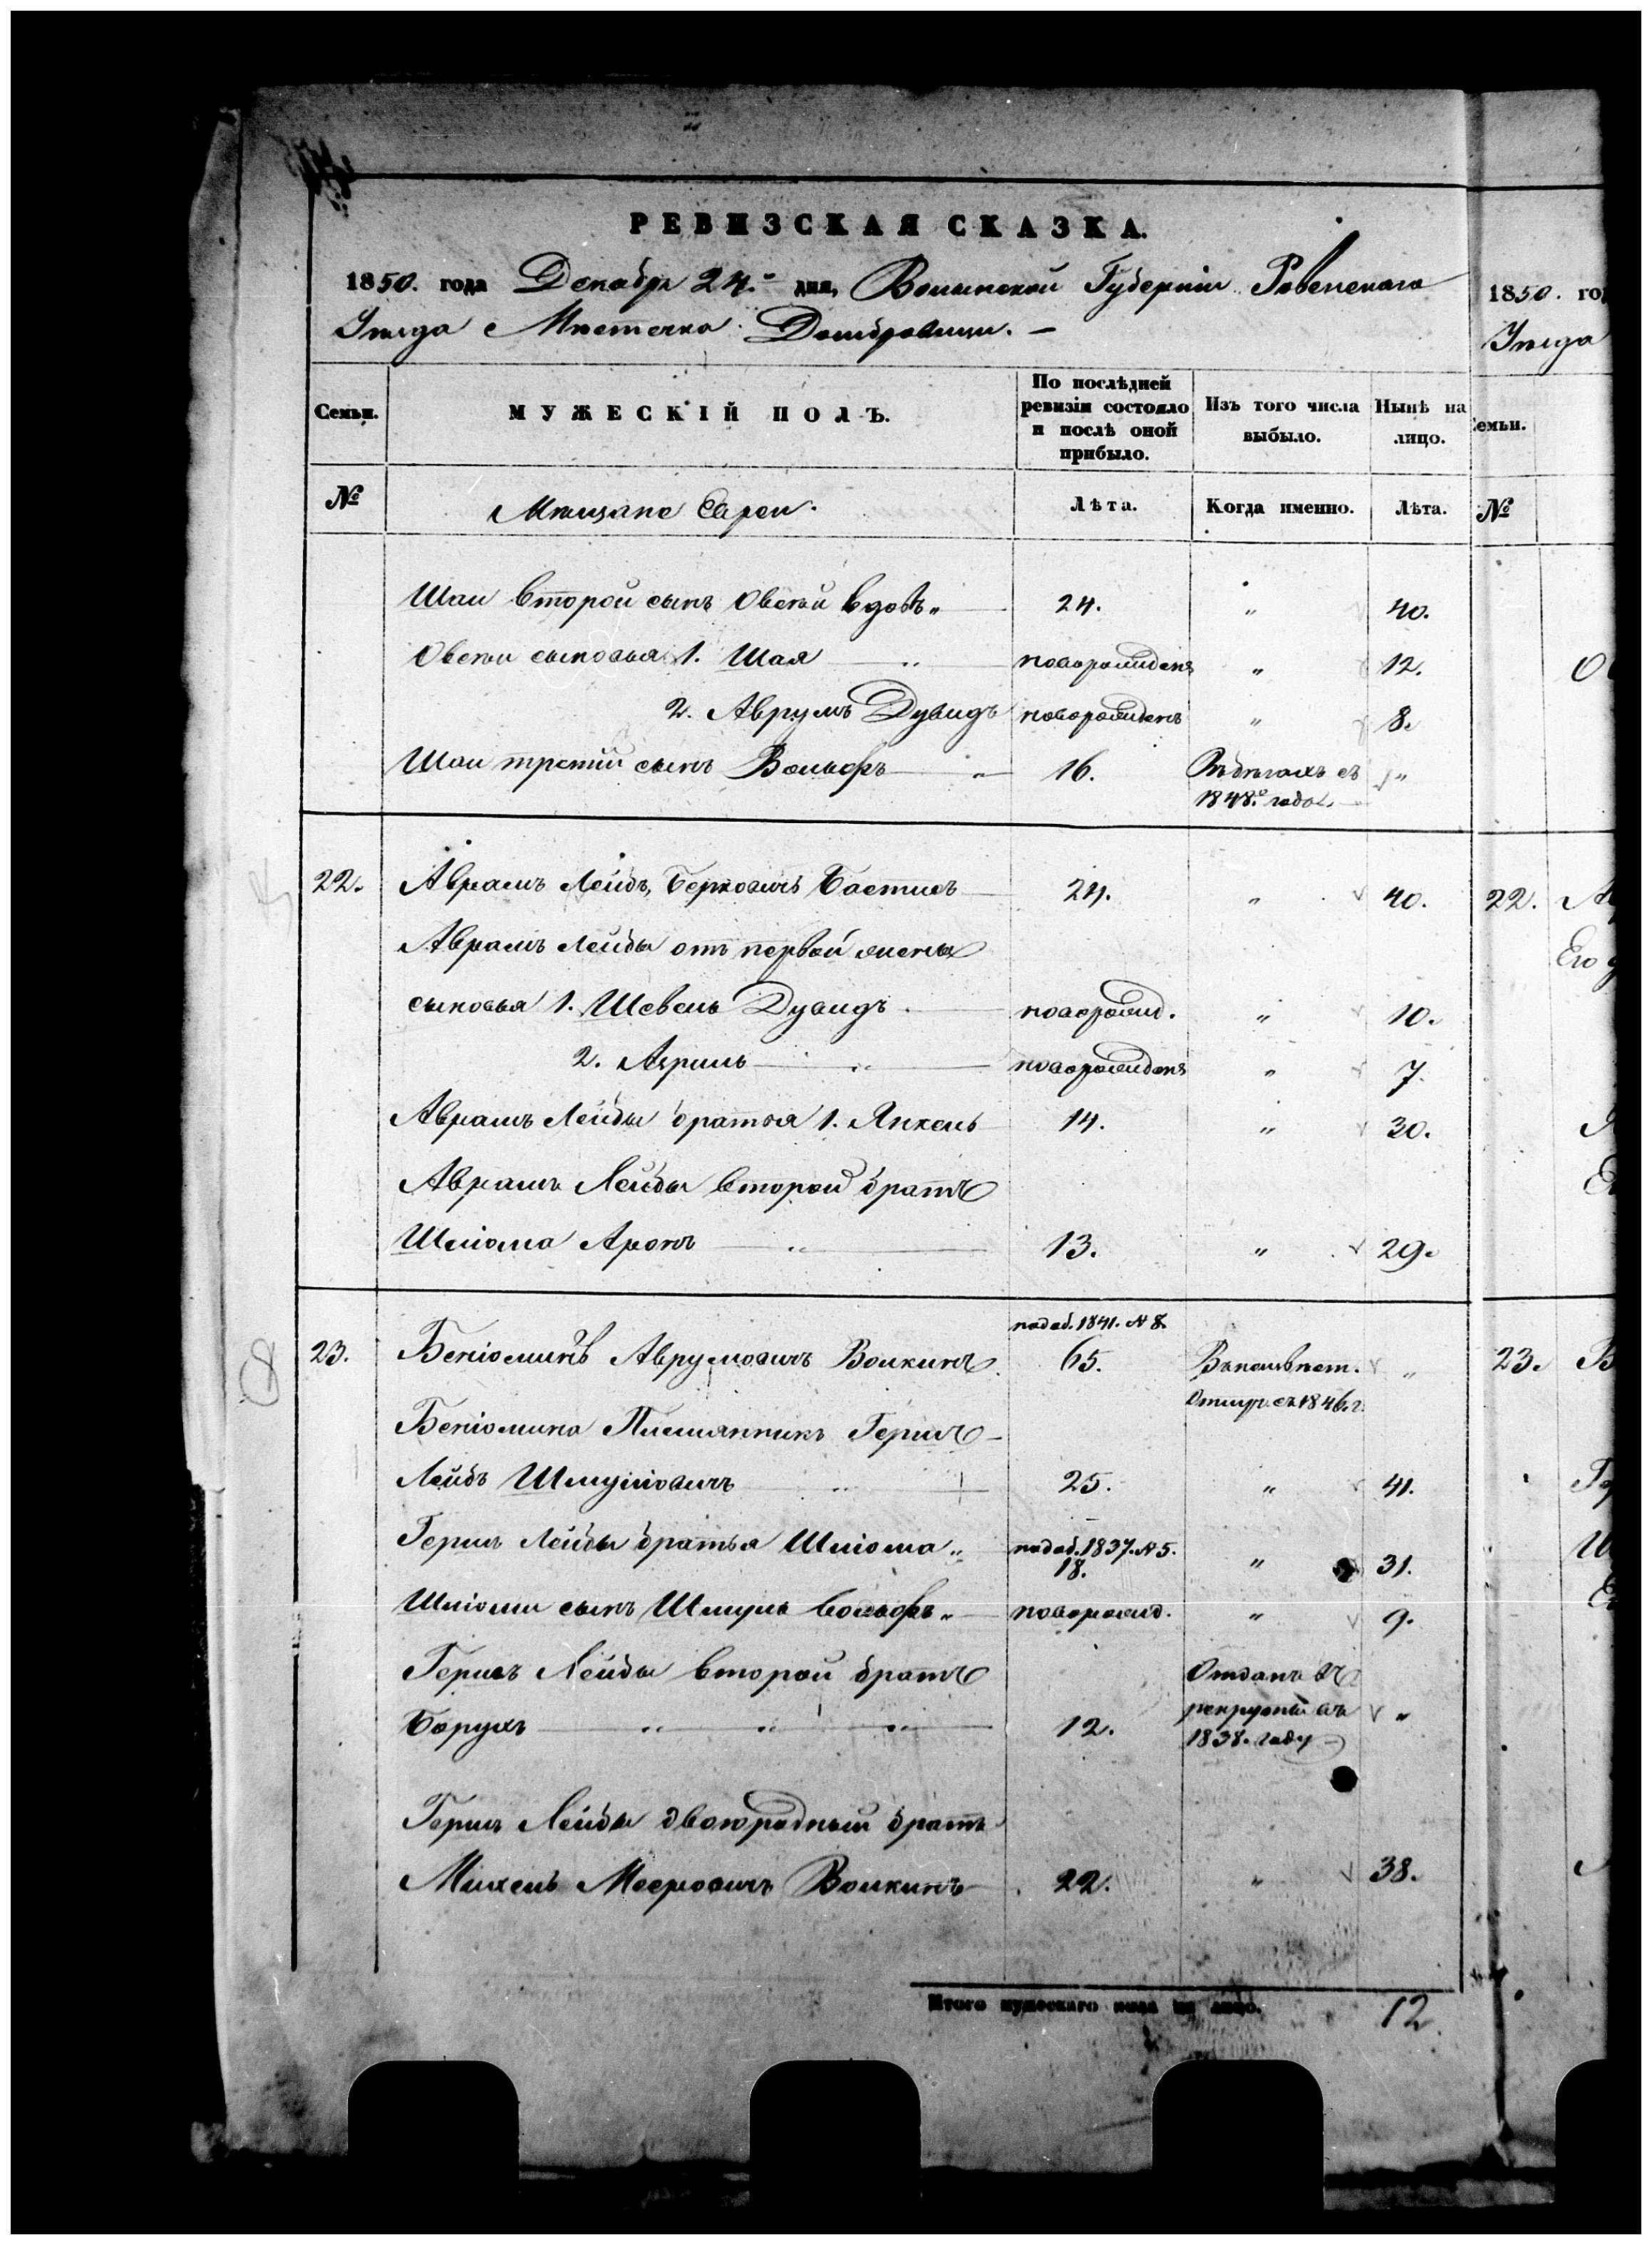 РЕВИЗСКАЯ СКАЗКА.
1850. года Декабря 24.го дня, Волынской Губерніи Ровенскаго
Уѣзда Мѣстечка Домбровицы. —
Семьи.
МУЖЕСКІЙ ПОЛЪ.
По послѣдней ревизіи состояло и послѣ оной прибыло.
Изъ того числа выбыло.
Нынѣ на лицо.
№
Мѣщане Евреи.
Лѣта.
Когда именно.
Лѣта.
Шаи второй сынъ Овсей вдовъ „ 24. „ 40.
Овсеи сыновья 1. Шая „ новорожденъ „ 12.
2. Аврумъ Дувидъ новорожденъ „ 8.
Шаи третій сынъ Вольфъ „ 16. Въ бѣгахъ съ „
1848.го года.
22. Аврамъ Лейбъ Берковичъ 24. „ 40.
Аврамъ Лейбы отъ первой жены
сыновья 1. Шевель Дувидъ новорожд. „ 10.
2. Азриль „ новорожденъ „ 7.
Аврамъ Лейбы братья 1. Янкель 14. „ 30.
Аврамъ Лейбы второй братъ
Шліома Аронъ „ 13. „ 29.
подоб. 1841. № 8.
23. Беніоминъ Аврумовичъ Волкинъ 65. „
Отмуч. съ 1846. г.
Беніомина Племянникъ Гершъ
Лейбъ Шмуйловичъ „ 25. „ 41.
Гершъ Лейбы братья Шліома „ подоб. 1837. № 5. 18. „ 31.
Шліомы сынъ Шмуль Вольфъ „ новорожд. „ 9.
Гершъ Лейбы второй братъ Отданъ въ
Борухъ „ „ „ 12. рекруты въ „
1838. году
Гершъ Лейбы двоюродный братъ
Михель Мееровичъ Волкинъ 22. „ 38.
Итого мужескаго пола на лицо. 12
1850. год
Уѣзда
емьи.
№
22.
Его
23.